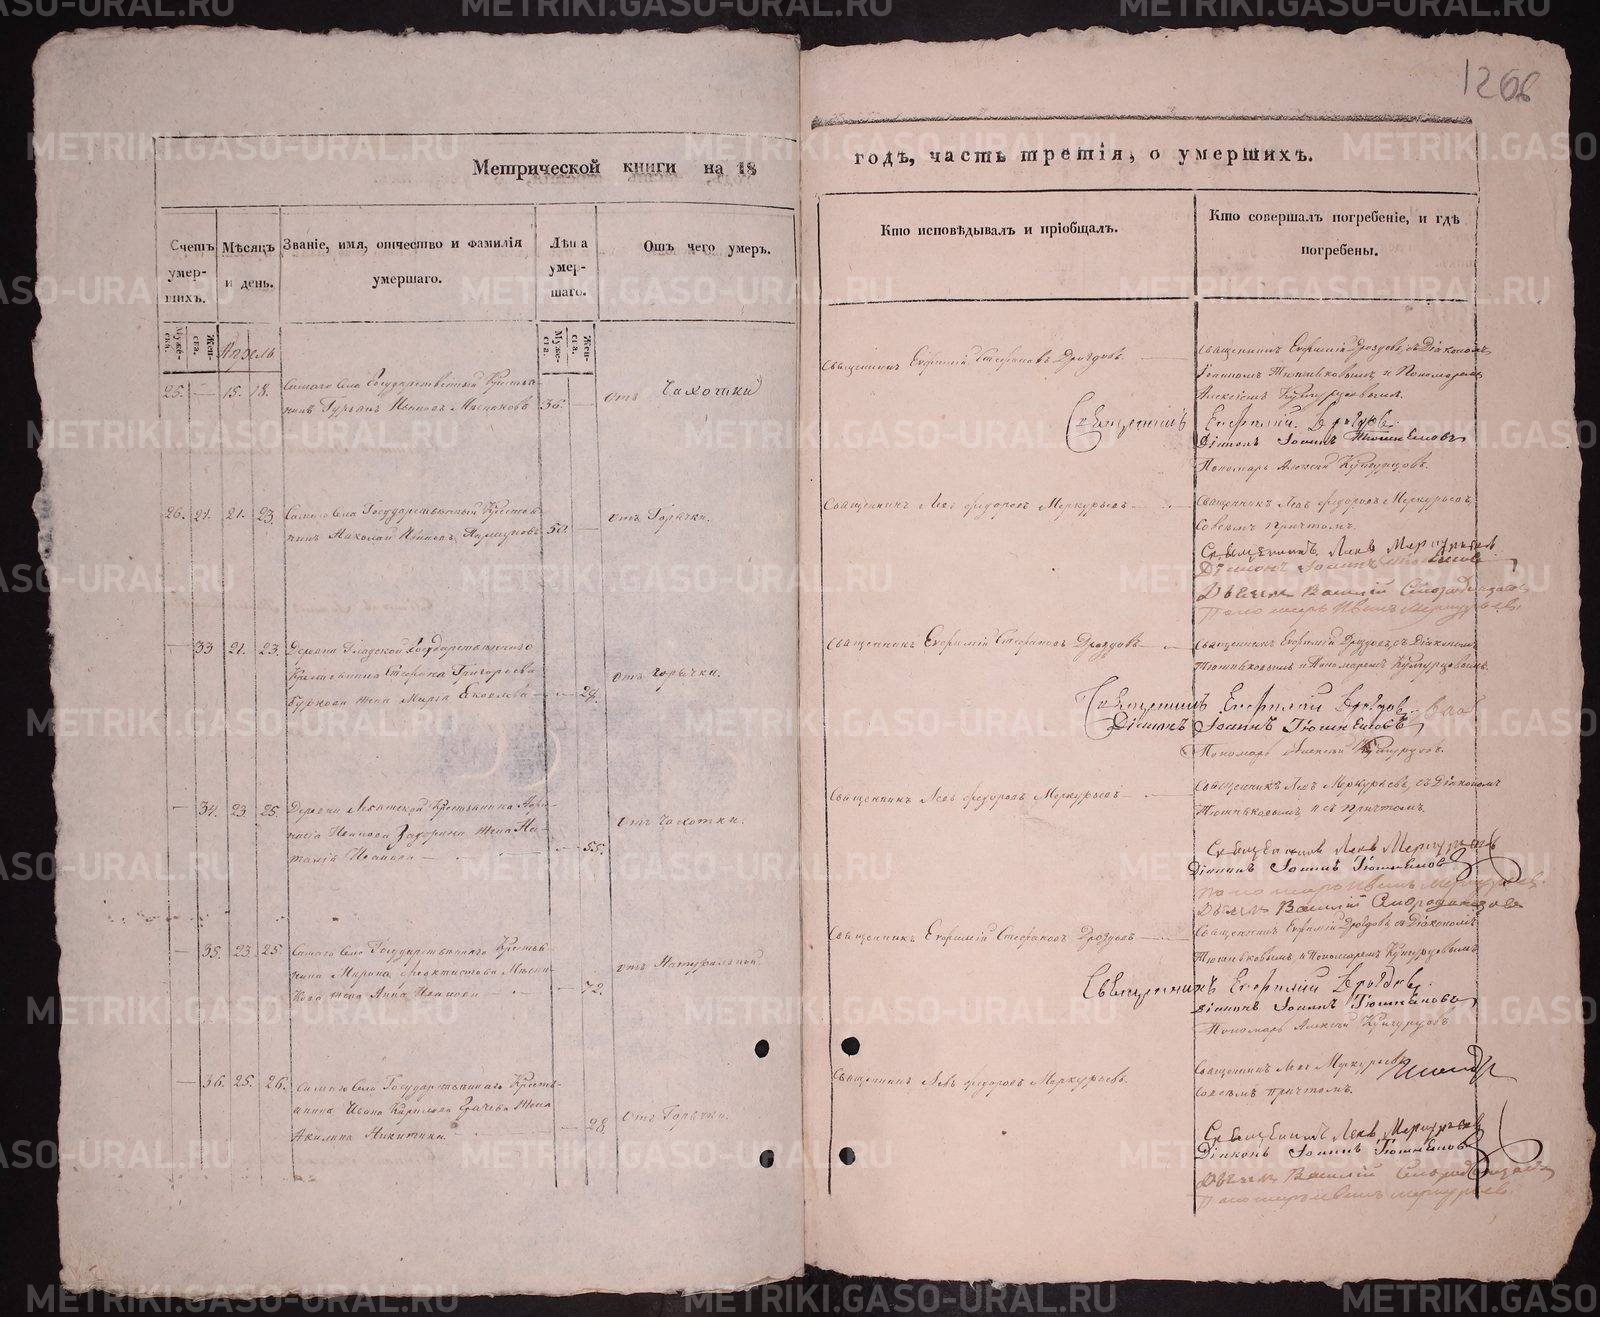 1266
Метрической книги на 18
годъ, часть третія, о умершихъ.
Счетъ умер-шихъ.
Мѣсяцъ и день.
Званіе, имя, отчество и фамилія умершаго.
Лѣта умер-шаго.
Отъ чего умеръ.
Кто исповѣдывалъ и пріобщалъ.
Кто совершалъ погребеніе, и гдѣ погребены.
Муже-ска.
Жен-ска.
Апрель
Муже-ска.
Жен-ска.
25. — 15. 18.
Самаго Села Государственный Крестья-
нинъ Гурьянъ Ивановъ
36. —
отъ Чахотки
Священникъ Евфимій Стефановъ Дроздовъ.
Священникъ Евфимій Дроздовъ, съ Діакономъ
Іоанномъ Тюшняковымъ и Пономаремъ
Алексіемъ Кунгурцовымъ.
Священникъ Евфимій Дроздовъ.
Діаконъ Іоаннъ Тюшняковъ
Пономарь Алексій Кунгурцовъ.
26. 21. 23.
Самаго Села Государственный Крестья-
нинъ Николай Ивановъ
50.
Отъ Горячки.
Священникъ Левъ Федоровъ Меркурьевъ
Священникъ Левъ Федоровъ Меркурьевъ
Совсемъ причтомъ.
Священникъ Левъ Меркурьевъ
Діаконъ Іоаннъ
Дьячекъ Василій
Пономарь Иванъ Меркурьевъ
— 33 21. 23.
Деревни Государственнаго
Крестьянина Стефана Григорьева
жена Марія Яковлева
— 29.
Отъ горячки.
Священникъ Евфимій Стефановъ Дроздовъ
Священникъ Евфимій Дроздовъ съ Діакономъ
Тюшняковымъ и Пономаремъ Кунгурцовымъ.
Священникъ Евфимій Дроздовъ
Діаконъ Іоаннъ Тюшняковъ
Пономарь Алексій Кунгурцовъ.
— 34. 23. 25.
Деревни Крестьянина
Иванова жена На-
талія Иванова
— 55.
Отъ Чахотки.
Священникъ Левъ Федоровъ Меркурьевъ
Священникъ Левъ Меркурьевъ, съ Діакономъ
Тюшняковымъ и съ причтомъ.
Священникъ Левъ Меркурьевъ
Діаконъ Іоаннъ Тюшняковъ
Пономарь Иванъ Меркурьевъ.
Дьячекъ Василій
— 35. 23. 25.
Самаго Села Государственнаго Крестья-
нина Марка Феоктистова
жена Анна Иванова
— 72.
отъ Натуральной.
Священникъ Евфимій Стефановъ Дроздовъ
Священникъ Евфимій Дроздовъ съ Діакономъ
Тюшняковымъ и Пономаремъ Кунгурцовымъ
Священникъ Евфимій Дроздовъ.
Діаконъ Іоаннъ Тюшняковъ
Пономарь Алексій Кунгурцовъ
— 36. 25. 26.
Самаго Села Государственнаго Кресть-
янина Ивана Кирилова Грачева жена
Акилина Никитина.
— 28.
Отъ Горячки.
Священникъ Левъ Федоровъ Меркурьевъ.
Священникъ Левъ Меркурьевъ
Совсѣмъ причтомъ.
Священникъ Левъ Меркурьевъ
Діаконъ Іоаннъ Тюшняковъ
Дьячекъ Василій
Пономарь Иванъ Меркурьевъ.
METRIKI.GASO-URAL.RU